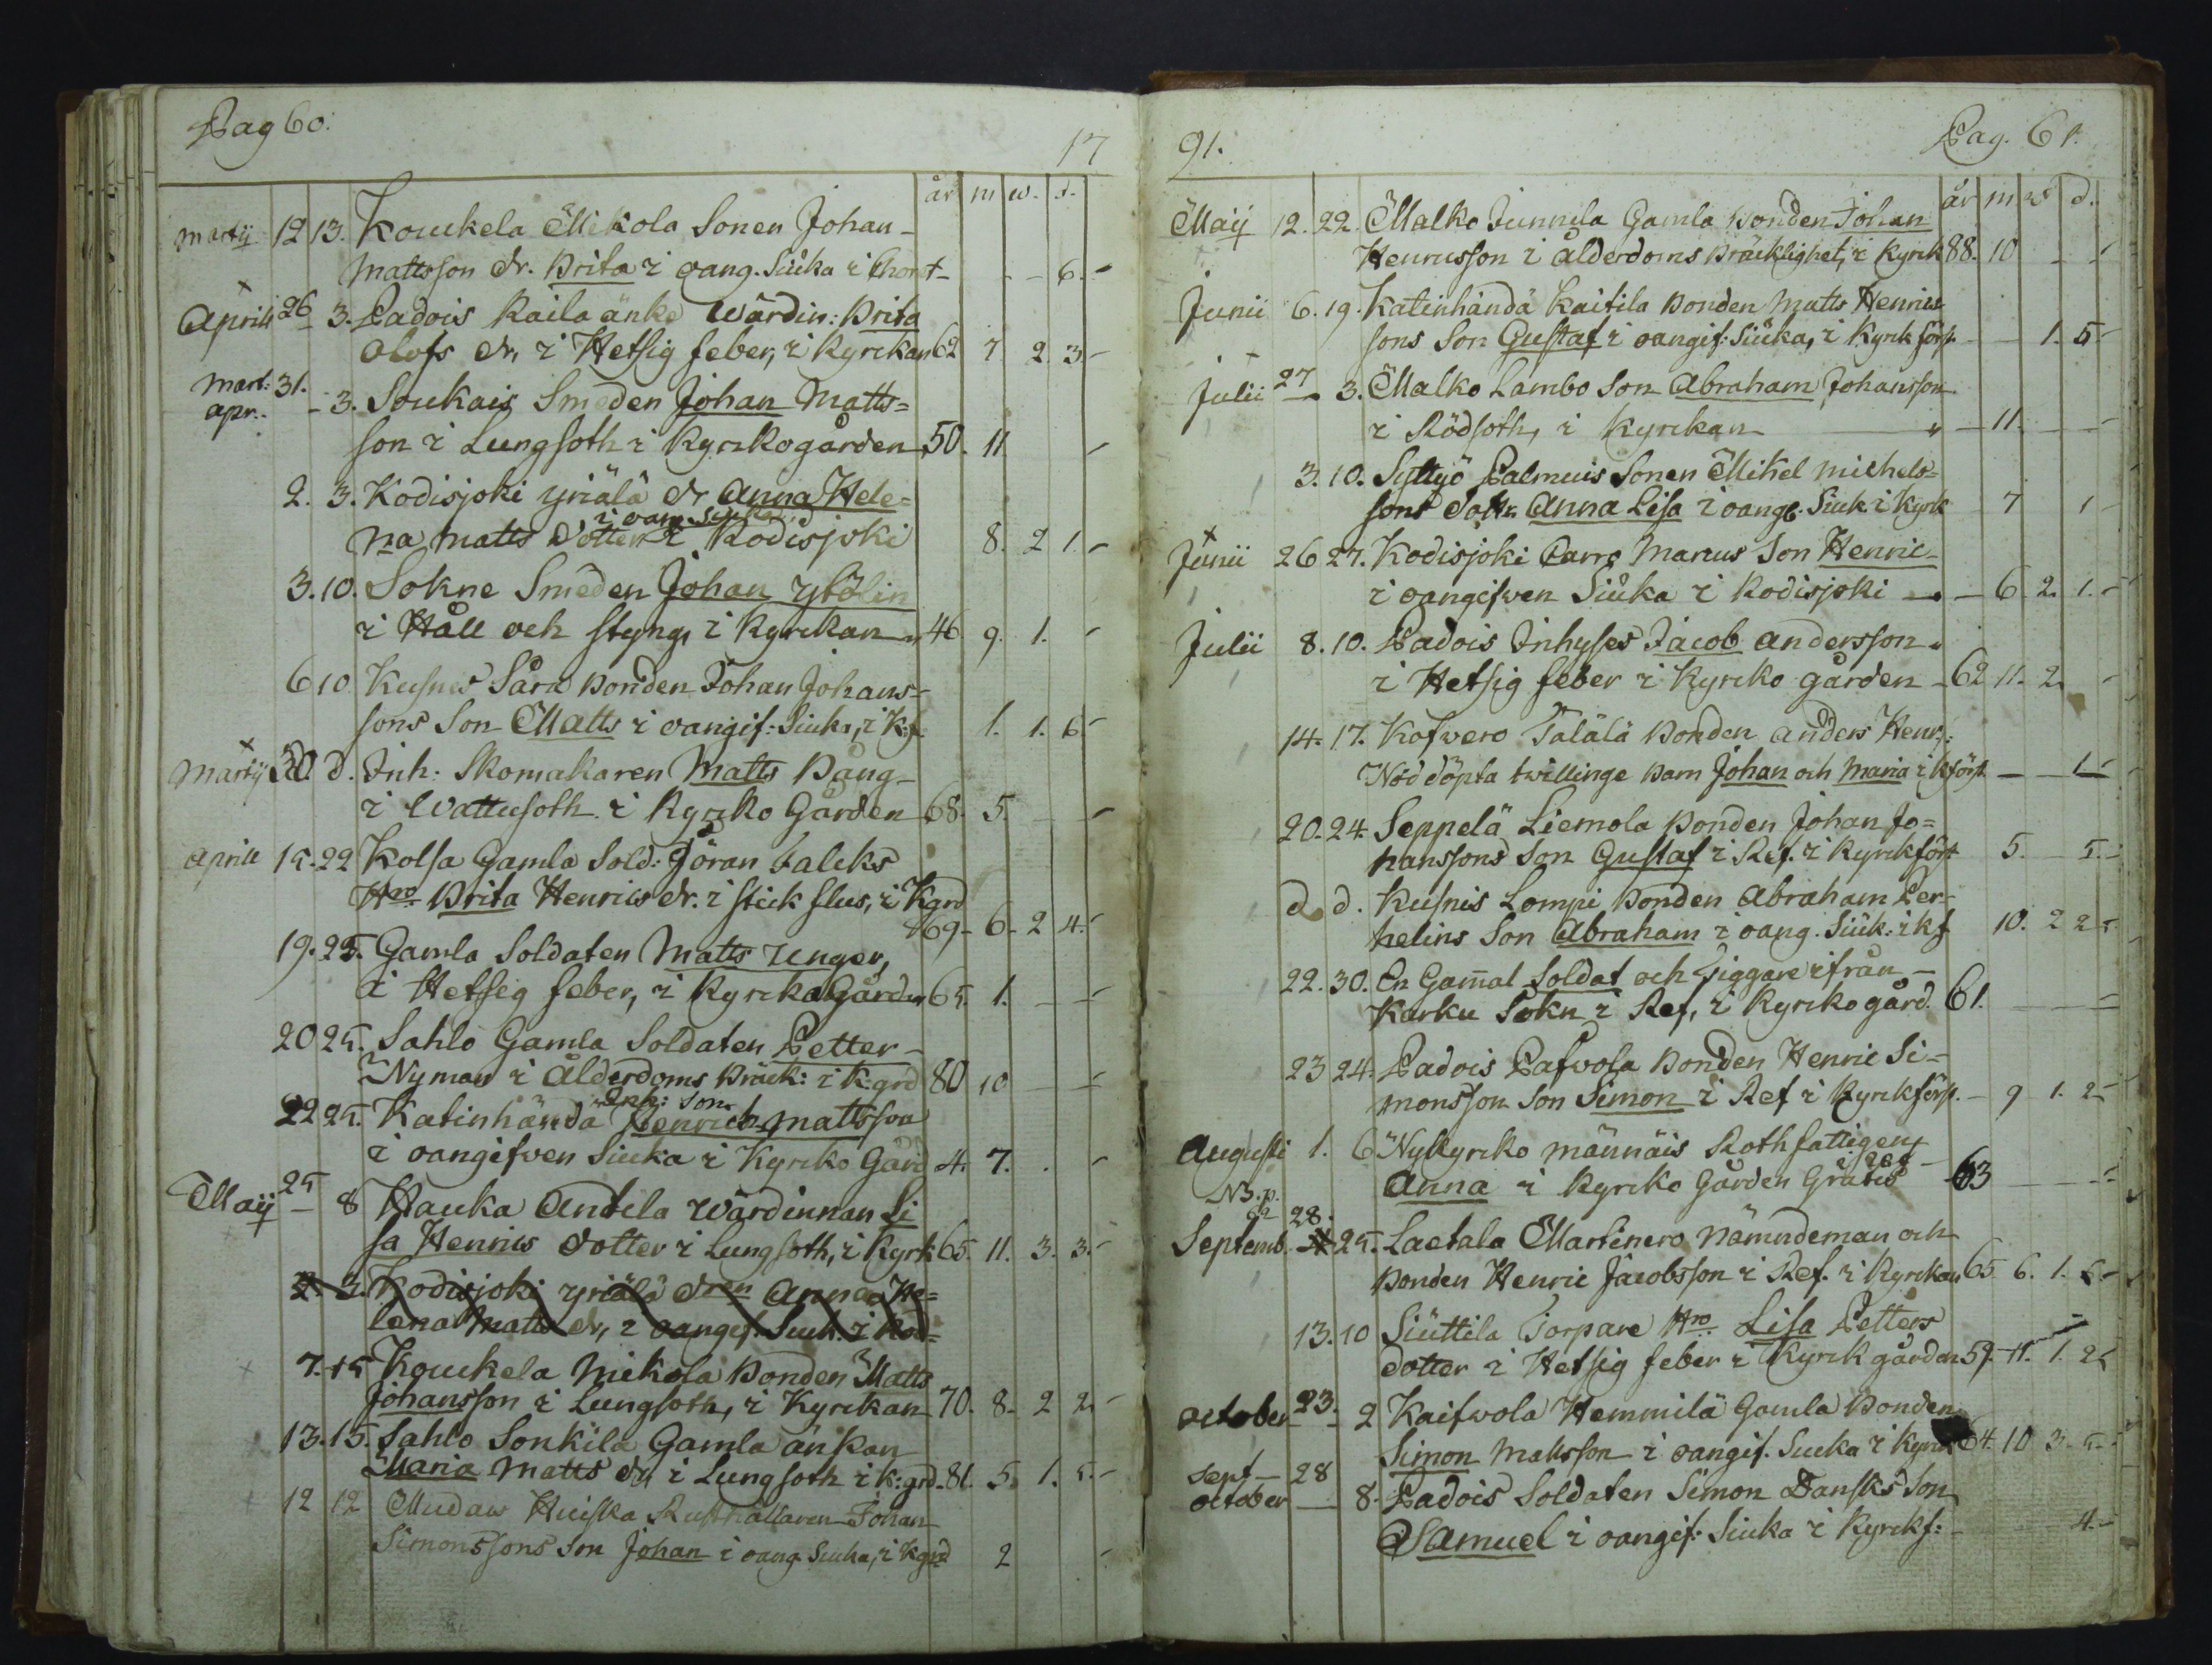 Pag 60.
17
år m w. d.
Martij 12 13. Koukela Mickola Sonen Johan
Mattsson dr. Brita i oang. Siuka i Chort 6.
Aprill 26 3. Padois Raila änke Wärdin: Brita
Olofs dr, i Hetsig feber, i Kyrckan 62 7 2 3
Mart: 31.
apr. - 3. Soukais Smeden Johan Matts=
son i Lungsoth i Kyrckogården 50. 11
2. 3. Kodisjoki yriälä dr Anna Hele=
i oang. Siuka
na Matts Dotter i Kodisjoki 8. 2 1.
3. 10. Sokne Smeden Johan
i Håll och styng, i Kyrckan 46 9. 1.
6 10 Kusnis Sara Bonden Johan Johans=
sons Son Matts i oangif: Siuka, i K:f. 1. 1. 6.
Martij 30. d. Inh: Skomakaren Matts Bång
i Wattusoth i Kyrcko Gården 68. 5.
Aprill 15. 22 Kolsa Gamla Sold: Göran Falcks
Hro Brita Henrics dr. i stick flus, i Kgrd
69 6 2 4.
19. 25. Gamla Soldaten Matts Unger,
i Hetsig feber, i Kyrcko Gården 65. 1.
20 25. Sahlo Gamla Soldaten Petter
Nyman i Ålderdoms Bräck: i K:grd 80 10
Inh: Son
22 25. Katinhända Henrich Mattsson
i oangifven Siuka i Kyrcko Gård 4. 7.
Maij 25 8 Hauka Andela Wärdinnan Li
sa Henrics dotter i Lungsoth, i Kyrk 65. 11. 3. 3.
2. 3. Kodisjoki yriälä dren Anna He=
lena Matts dr, i oangif. Siuk. i Kod=
7. 15 Koukela Mickola Bonden Matts
Johansson i Lungsoth, i Kyrckan 70. 8. 2 2.
13. 15. Sahlo Sonkila Gamla änkan
Maria Matts dr, i Lungsoth i K:grd. 81. 5. 1. 5.
12 12 Mudais Huiska Rusthållaren Johan
Simonssons Son Johan i oang. Siuka, i Kgrd 2
91.
Pag. 61.
år m w d.
Maij 12. 22. Malko Junnila Gamla Bonden Johan
Henricsson i Ålderdoms Bräcklighet, i Kyrck 88. 10
Junii 6. 19. Katinhändä Kaitila Bonden Matts Henrics
sons Son Gustaf i oangif: Siuka, i Kyrck förs. 1. 5.
Julii 27 3. Malko Lambo Son Abraham Johansson
i Rödsoth, i Kyrckan 11.
3. 10. Syttyö Palmuis Sonen Mikel Michels=
sons Dottr. Anna Lisa i oang. Siuk i Kyrk 7 1
Junii 26 27. Kodisjoki Parro Marcus Son Henric
i oangifven Siuka i Kodisjoki 6. 2. 1.
Julii 8. 10. Padois Inhyses Jacob Andersson
i Hetsig feber i Kyrcko gården 62 11. 2.
14. 17. Kofvero Tälälä Bonden Anders Henr:
Nöddöpta twillinge Barn Johan och Maria i Kförs. 1
20. 24. Seppelä Liemola Bonden Johan Jo=
hanssons Son Gustaf i Ref. i Kyrckförs 5. 5.
d. d. Kusnis Lompi Bonden Abraham Per=
helins Son Abraham i oang. Siuk: i kf 10. 2 2
22. 30. En Gam̄al Soldat och Tiggare ifrån
Karku Sokn i Ref, i Kyrcko gård. 61.
23 24. Padois Pafvola Bonden Henric Si=
monsson Son Simon i Ref i Kyrckförs. 9 1. 2
Augusti 1. 6 Nykyrcko männäis Rothfattigen
i Ref
Anna i Kyrcko Gården Gratis 63
NB. p.
62 28.
Septemb. 25. Laetala Martinero Nämndeman och
Bonden Henric Jacobsson i Ref. i Kyrckan 65 6. 1. 6
13. 10 Siuttila Torpare Hro Lisa Petters
dotter i Hetsig feber i Kyrck gården 59. 11. 1. 2
October 23. 2 Kaifvola Hemmilä Gamla Bonden
Simon Mattsson i oangif. Siuka i Kyrck 64. 10 3. 5
Sept 28
October 8. Padois Soldaten Simon Dansks Son
Samuel i oangif: Siuka i Kyrckf: 4.